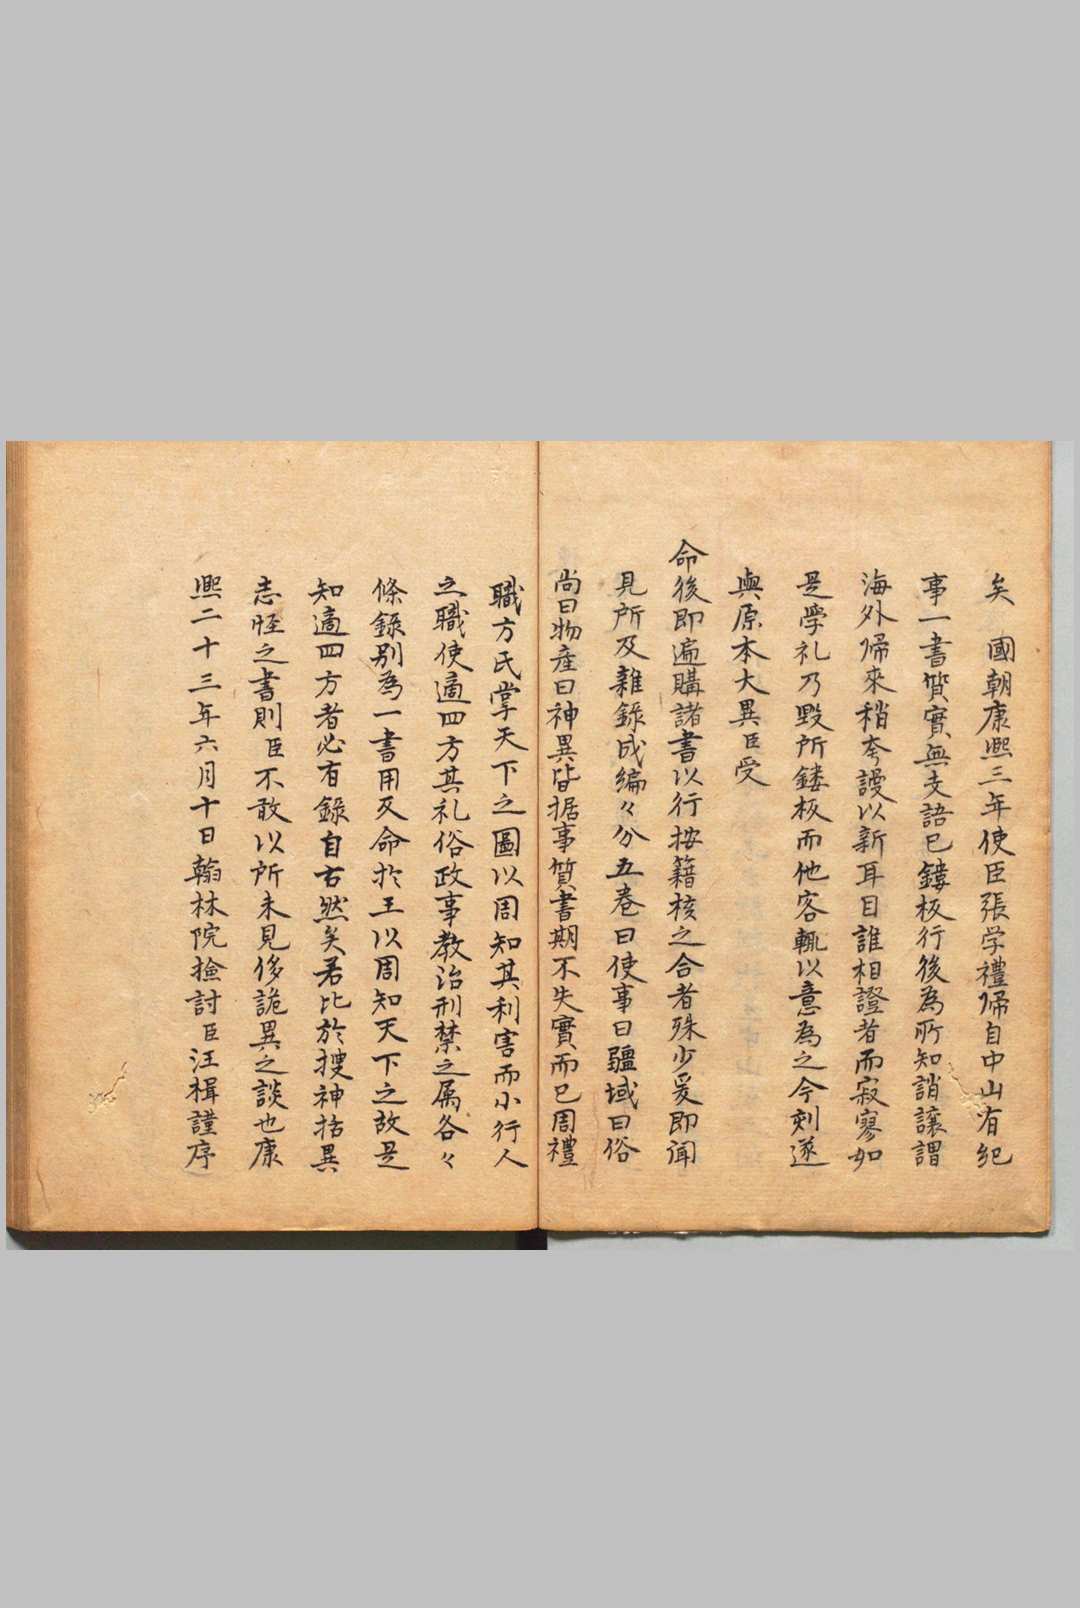 矣　國朝康熙三年使臣張学禮帰自中山有紀
事一書質實無支語已鏤板行後為所知誚讓謂
海外帰來稍夸謾以新耳目誰相證者而寂寥如
是学礼乃毀所鏤板而他客輒以意為之今刻遂
與原本大異臣受
命後即遍購諸書以行按籍核之合者殊少爰即闻
見所及雜錄成編々分五卷曰使事曰疆域曰俗
尚曰物產曰神異皆据事質書期不失實而已周禮
職方氏掌天下之圖以周知其利害而小行人
之職使適四方其礼俗政事教治刑禁之属各々
條錄别為一書用反命於王以周知天下之故是
知適四方者必有錄自古然矣若比於搜神括異
志怪之書則臣不敢以所未見侈詭異之談也康
熙二十三年六月十日翰林院撿討臣汪楫謹序